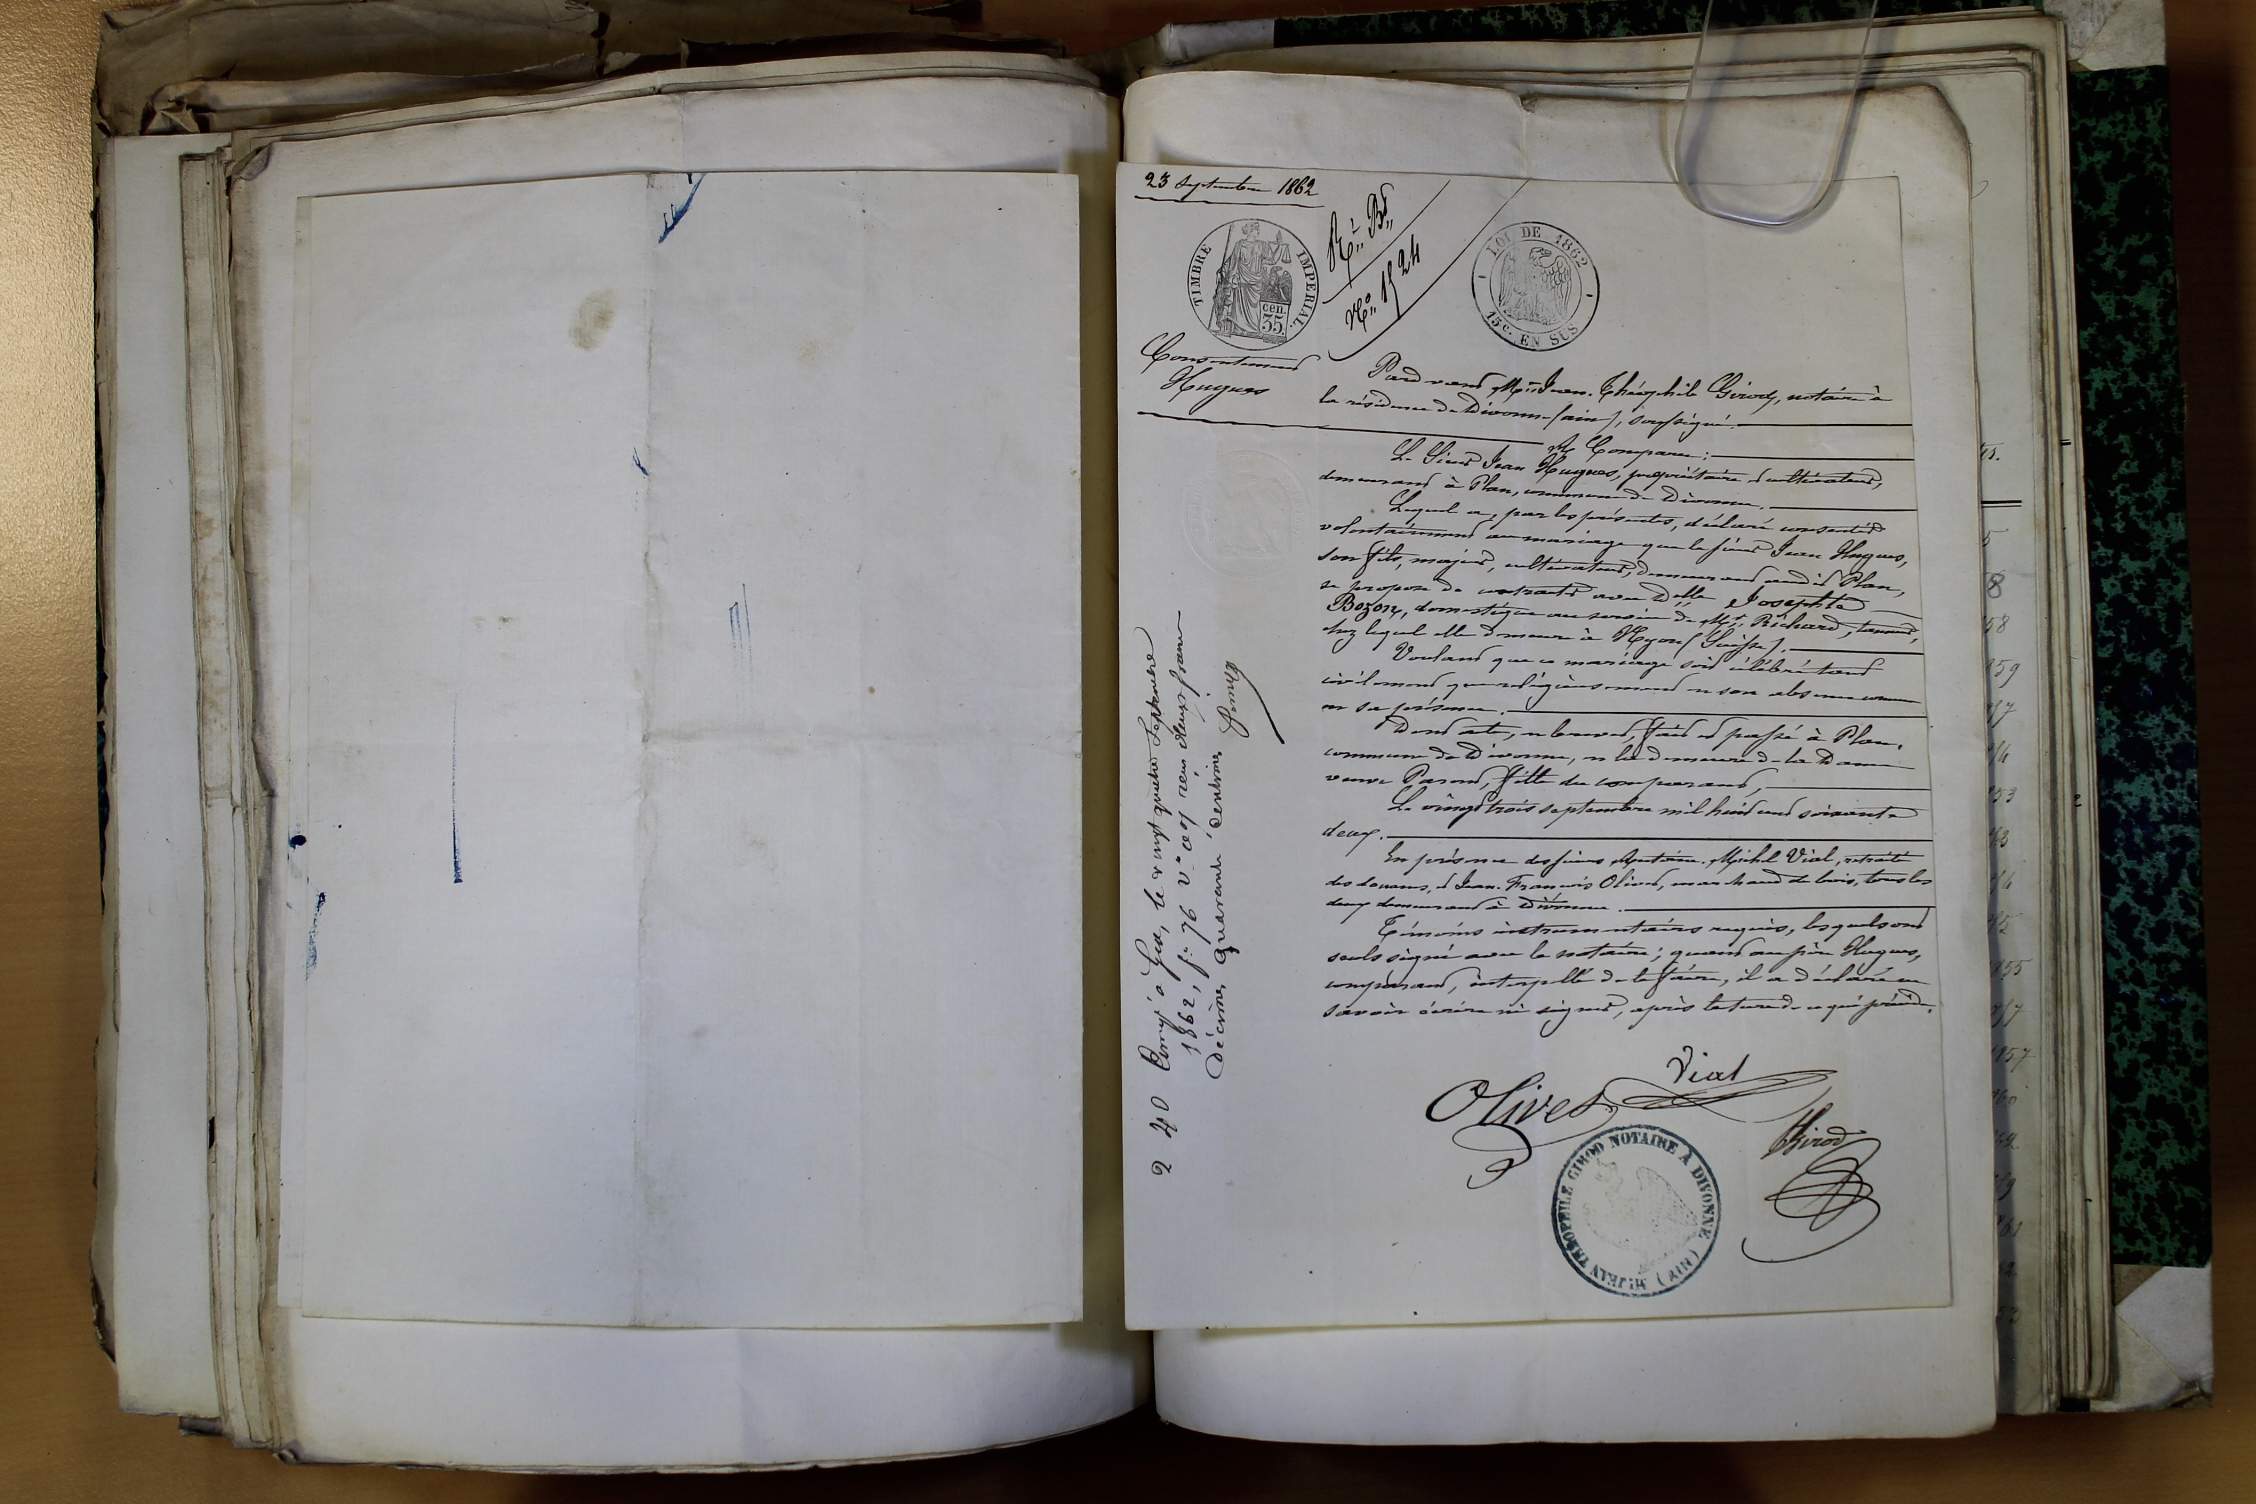 23 Septembre 1862
TIMBRE IMPERIAL
cen.
35.
Rie. Bt.
No. 1524
LOI DE 1862
15 c. EN SUS
Consentement
Hugues
Pardevant Me. Jean-Théophile Girod, notaire à
la résidence de Divonne (ain), soussigné.
A Comparu:
Le Sieur Jean Hugues, propriétaire cultivateur,
demeurant à Plan, commune de Divonne.
Lequel a, par les présentes, déclaré consentir
volontairement au mariage que le sieur Jean Hugues,
son fils, majeur, cultivateur, demeurant audit Plan,
se propose de contracter avec Delle Josephte
Bozon, domestique au service de Mr. Richard, tanneur,
chez lequel elle demeure à Nyon (Suisse).
Voulant que ce mariage soit célébré tant
civilement que religieusement en son absence comme
en sa présence.
Dont acte, en brevet, fait et passé à Plan,
commune de Divonne, en la demeure de la Dame
veuve, fille du comparant,
Le vingt trois septembre mil huit cent soixante
deux.
En présence des sieurs Antoine-Michel Vial, retraité
des douanes, et Jean-François Olivet, marchand de bois, tous les
deux demeurant à Divonne.
Témoins instrumentaires requis, lesquels ont
seuls signé avec le notaire; quant au père Hugues,
comparant, interpellé de le faire, il a déclaré ne
savoir écrire ni signer, après lecture de ce qui précède.
Vial
Olivet
Girod
Me JEAN THÉOPHILE GIROD NOTAIRE À DIVONNE (AIN)
2 40 Enregé à Gex, le vingt quatre Septembre
1862, f: 76 Vo reçu deux francs
Décime, quarante centimes